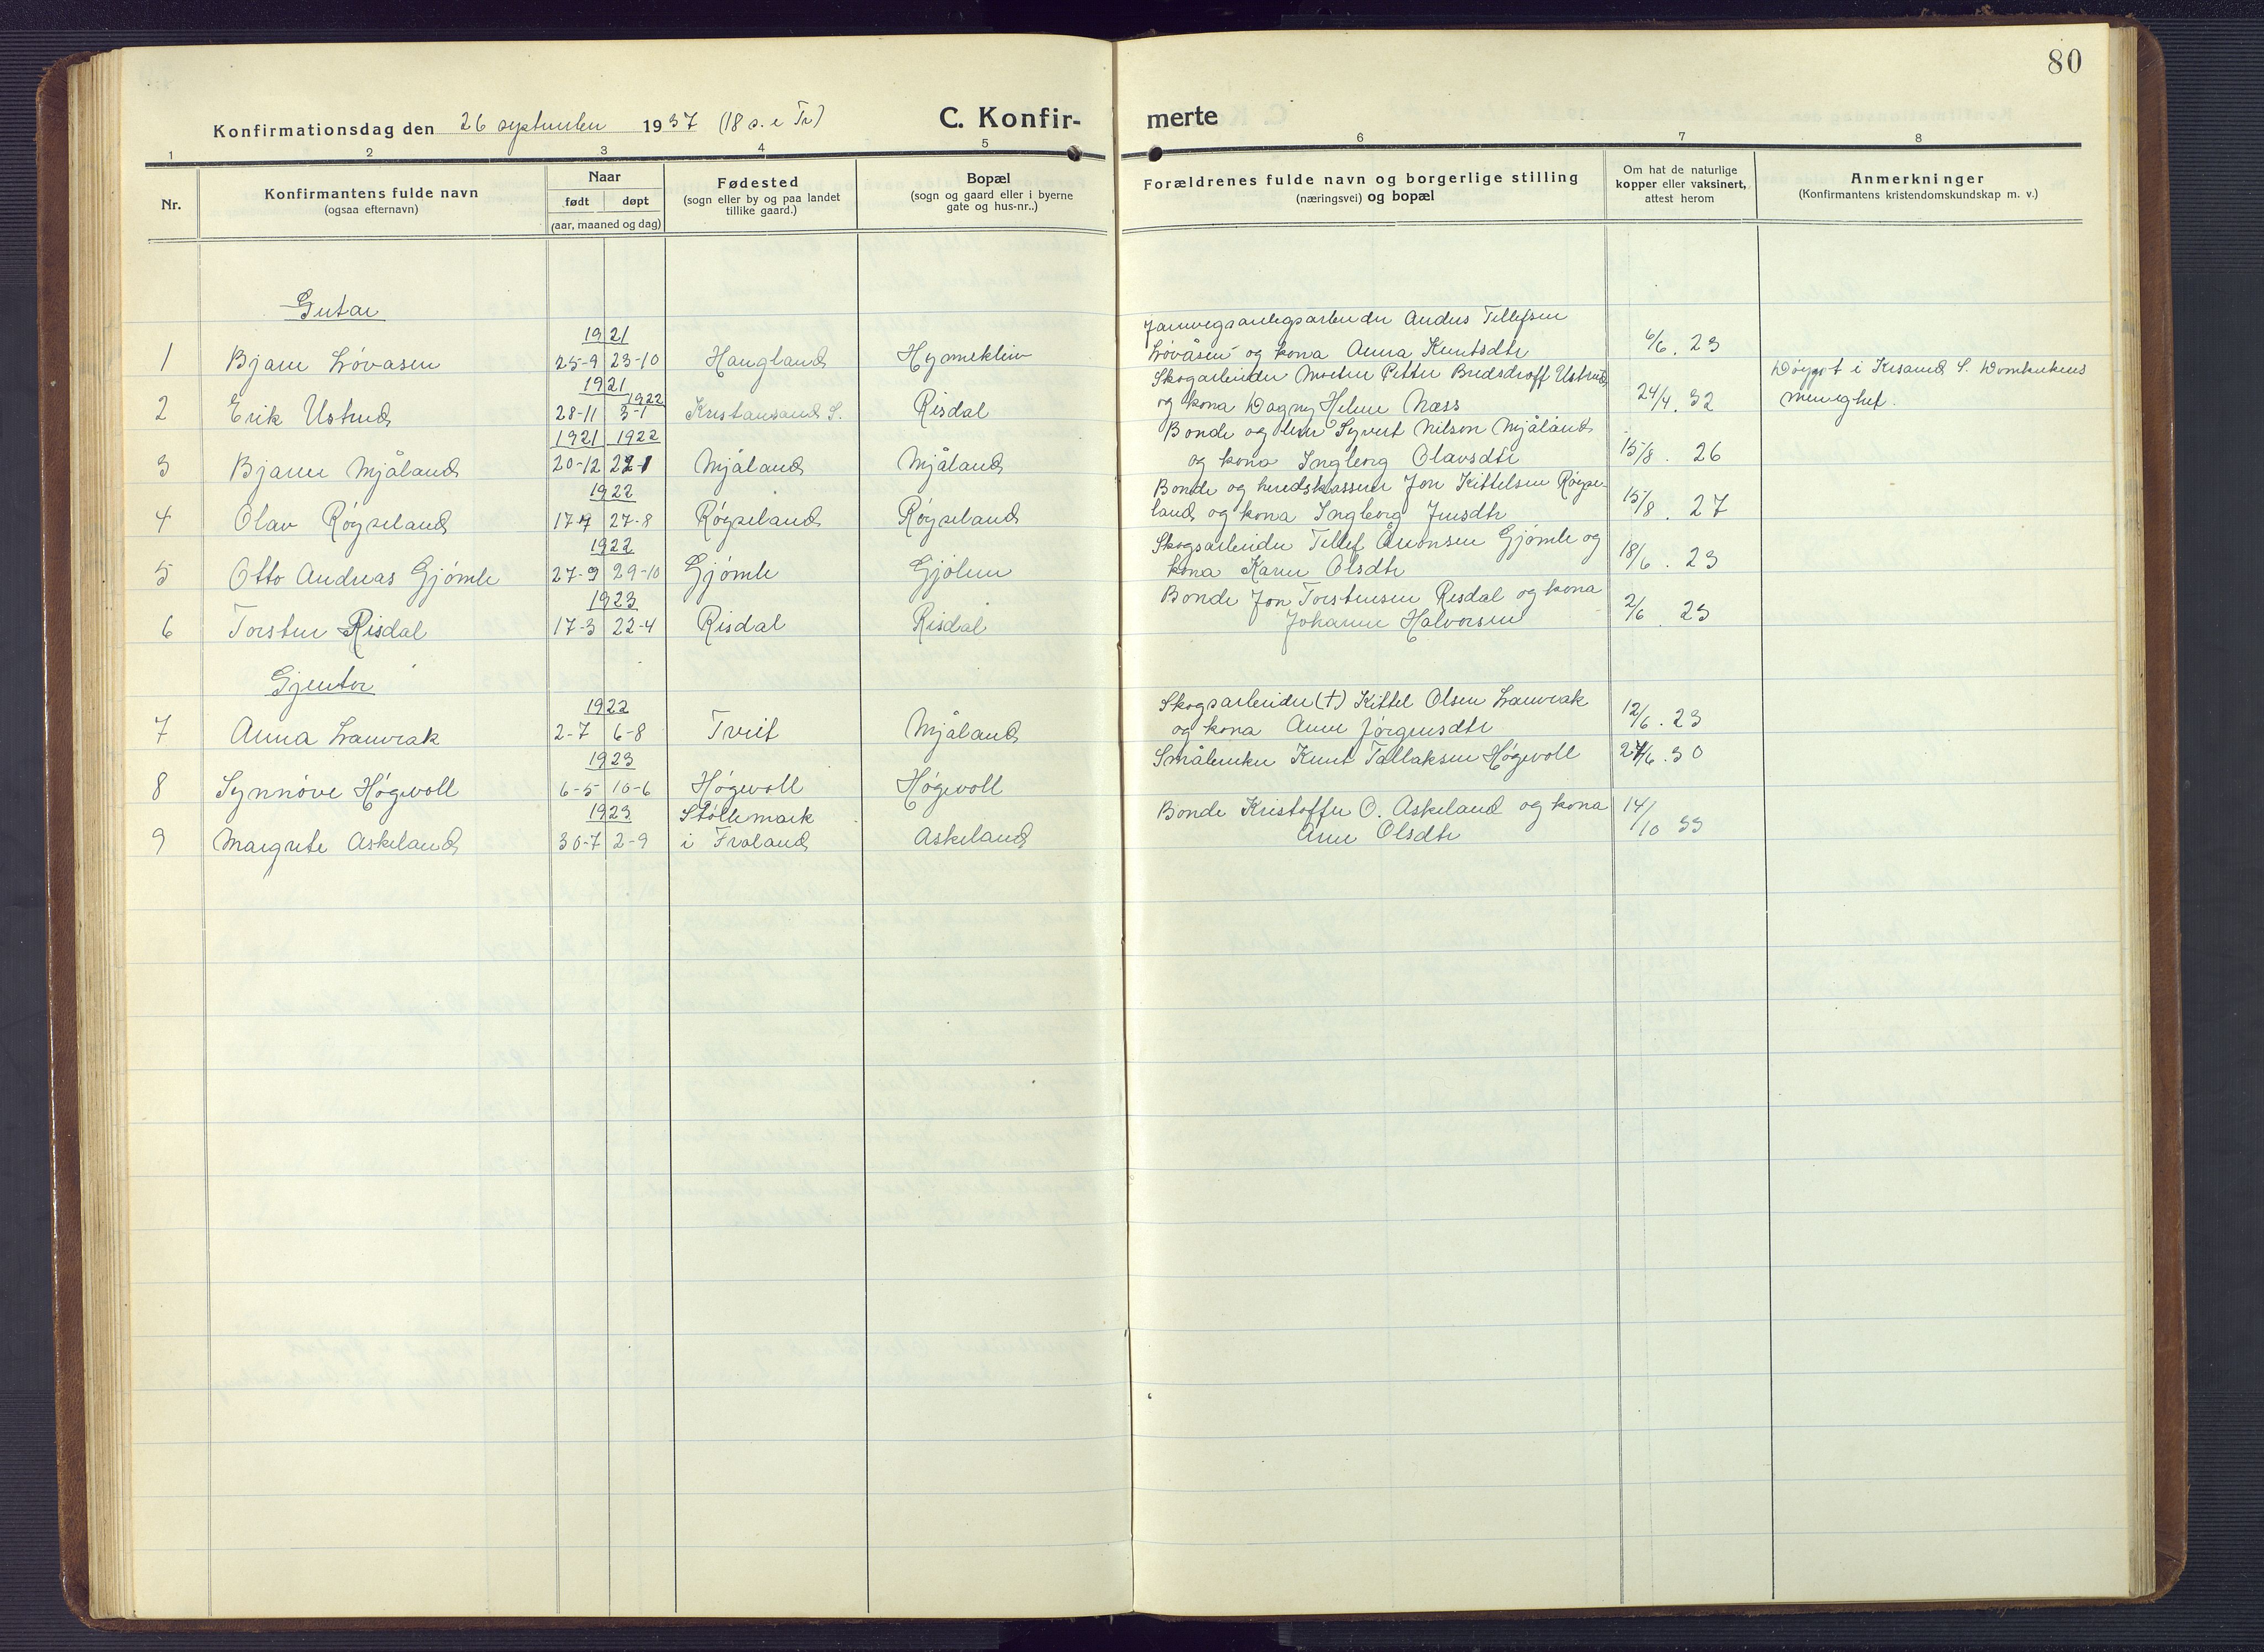 80
Konfirmationsdag den 26 september 1937 (18 s. e Tr)
C. Konfir-
merte
1 2 3 4 5 6 7 8
Nr.
Konfirmantens fulde navn
(ogsaa efternavn)
Naar
født døpt
(aar, maaned og dag)
Fødested
(sogn eller by og paa landet
tillike gaard.)
Bopæl
(sogn og gaard eller i byerne
gate og hus-nr..)
Forældrenes fulde navn og borgerlige stilling
(næringsvei) og bopæl
Om hat de naturlige
kopper eller vaksinert,
attest herom
Anmerkninger
(Konfirmantens kristendomskundskap m. v.)
Gutar
1921
Jarnvegsanlegsarbeider Anders Tellefsen
1 Bjarne Løvåsen 25-9 23-10 Haugland
Løvåsen og kona Anna Knutsdtr 6/6. 23
1921 1922
Skogarbeider Morten Petter Bredsdroff Ustrud
Døypt i Krsand S. Domkirkens
2 Erik Ustrud 28-11 3-1 Kristiansand S. Risdal
og kona Dagny Helene Næss 24/4. 32 menighet.
1921 1922
Bonde og Syvert Nilson Mjåland
3 Bjarne Mjåland 20-12 22-1 Mjåland Mjåland
og kona Ingborg Olavsdtr 15/8. 26
1922
Bonde og heredskasserer Jon Kittelsen Røyse-
4 Olav Røyseland 17-7 27-8 Røyseland Røyseland
land og kona Ingborg Jensdtr 15/8. 27
1922
Skogsarbeider Tellef Åronsen Gjømle og
5 Otto Andreas Gjømle 27-9 29-10 Gjømle
kona Karen Olsdtr 18/6. 23
1923
Bonde Jon Torstensen Risdal og kona
6 Torsten Risdal 17-3 22-4 Risdal Risdal
Johanne Halvorsen 2/6. 23
Gjentor
1922
Skogsarbeider (†) Kittel Olsen Lauvrak
7 Anna Lauvrak 2-7 6-8 Tveit Mjåland
og kona Anne Jørgensdtr 12/6. 23
1923
Småbruker Knut Tallaksen Høgevoll 27/6. 30
8 Synnøve Høgevoll 6-5 10-6 Høgevoll Høgevoll
1923 Støllemark
Bonde Kristoffer O. Askeland og kona 14/10 33
9 Margrete Askeland 30-7 2-9 i Froland Askeland
Olsdtr